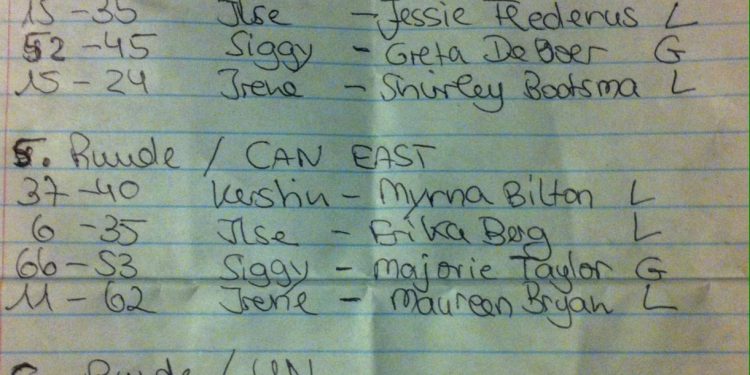 15-35 Ilse - Jessie Flederus L
52-45 Siggy - Greta De Boer G
15-24 Irene - Shirley Bootsma L
5. Runde / CAN EAST
37-40 Kerstin - Myrna Bilton L
6-35 Ilse - Erika Berg L
66-53 Siggy - Majorie Taylor G
11-62 Irene - Maureen Bryan L
Runde /